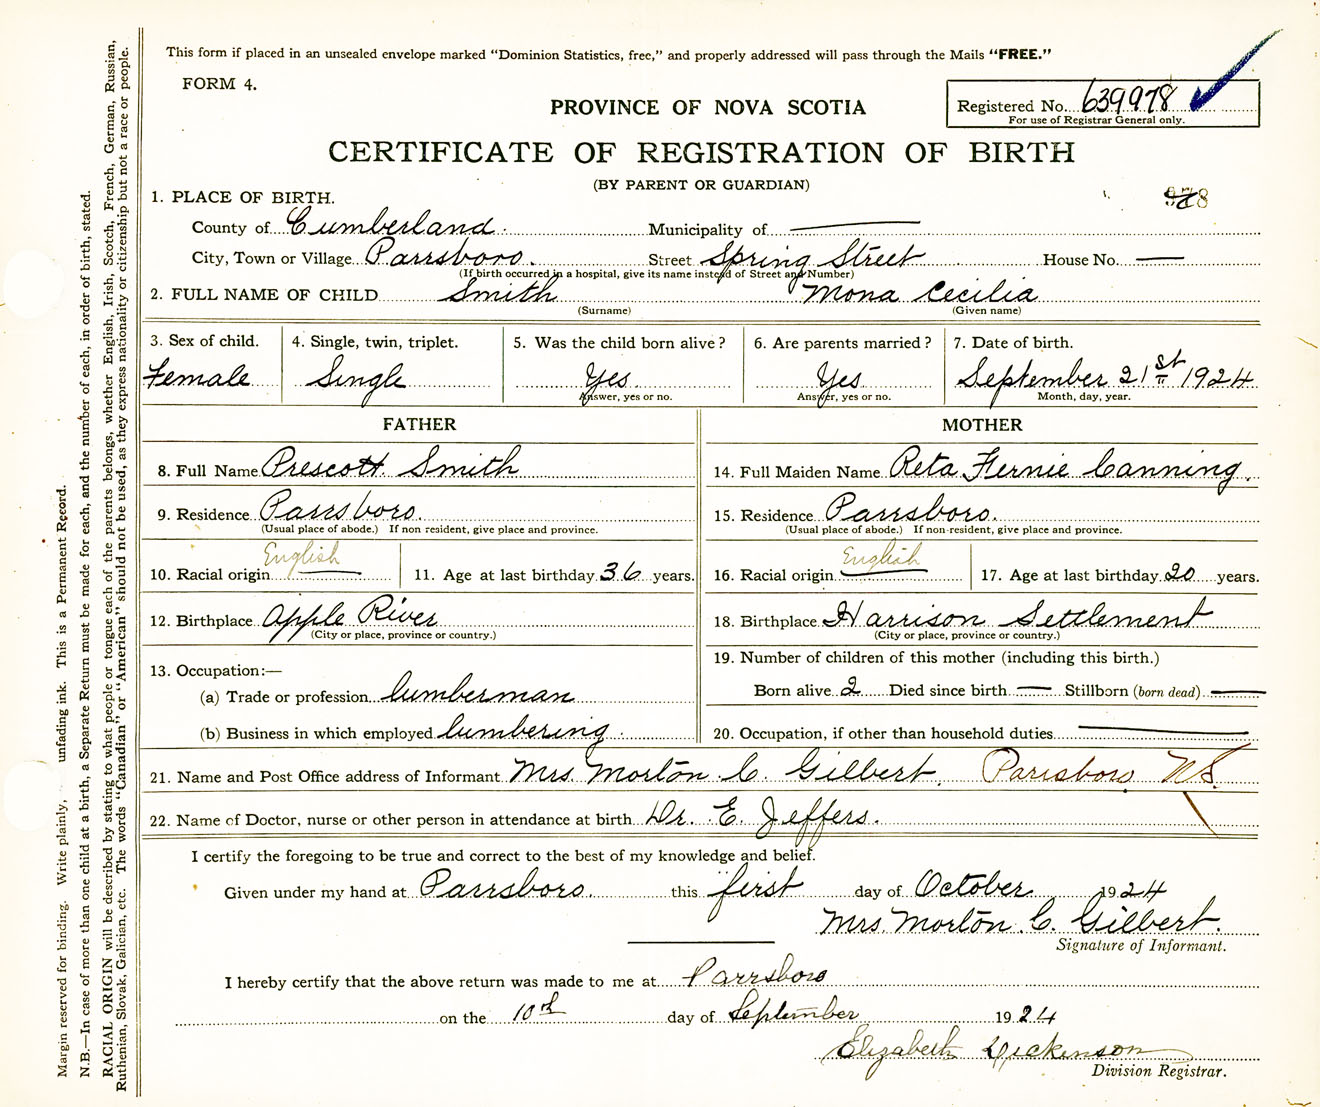 This form if placed in an unsealed envelope marked "Dominion Statistics, free," and properly addressed will pass through the Mails "FREE."
FORM 4.
PROVINCE OF NOVA SCOTIA
Registered No. 639978
For use of Registrar General only.
CERTIFICATE OF REGISTRATION OF BIRTH
(BY PARENT OR GUARDIAN)
1. PLACE OF BIRTH.
County of Cumberland. Municipality of —
City, Town or Village Parrsboro. Street Spring Street House No. —
(If birth occurred in a hospital, give its name instead of Street and Number)
2. FULL NAME OF CHILD Smith Mona Cecilia
(Surname) (Given name)
3. Sex of child. 4. Single, twin, triplet. 5. Was the child born alive? 6. Are parents married? 7. Date of birth.
Female Single Yes Yes September 21st 1924
Answer, yes or no. Answer, yes or no. Month, day, year.
FATHER MOTHER
8. Full Name Prescott Smith 14. Full Maiden Name Reta Fernie Canning.
9. Residence Parrsboro. 15. Residence Parrsboro.
(Usual place of abode.) If non resident, give place and province. (Usual place of abode.) If non-resident, give place and province.
10. Racial origin English 11. Age at last birthday 36 years. 16. Racial origin English 17. Age at last birthday 20 years.
12. Birthplace Apple River 18. Birthplace Harrison Settlement
(City or place, province or country.) (City or place, province or country.)
13. Occupation:— 19. Number of children of this mother (including this birth.)
(a) Trade or profession lumberman Born alive 2 Died since birth — Stillborn (born dead) —
(b) Business in which employed lumbering. 20. Occupation, if other than household duties —
21. Name and Post Office address of Informant Mrs. Morton C. Gilbert, Parrsboro N.S.
22. Name of Doctor, nurse or other person in attendance at birth Dr. E. Jeffers.
I certify the foregoing to be true and correct to the best of my knowledge and belief.
Given under my hand at Parrsboro. this first day of October 1924
Mrs. Morton C. Gilbert.
Signature of Informant.
I hereby certify that the above return was made to me at Parrsboro
on the 10th day of September 1924
Elizabeth Dickinson
Division Registrar.
Margin reserved for binding. Write plainly, unfading ink. This is a Permanent Record.
N.B.—In case of more than one child at a birth, a Separate Return must be made for each, and the number of each, in order of birth, stated.
RACIAL ORIGIN will be described by stating to what people or tongue each of the parents belongs, whether English, Irish, Scotch, French, German, Russian,
Ruthenian, Slovak, Galician, etc. The words "Canadian" or "American" should not be used, as they express nationality or citizenship but not a race or people.